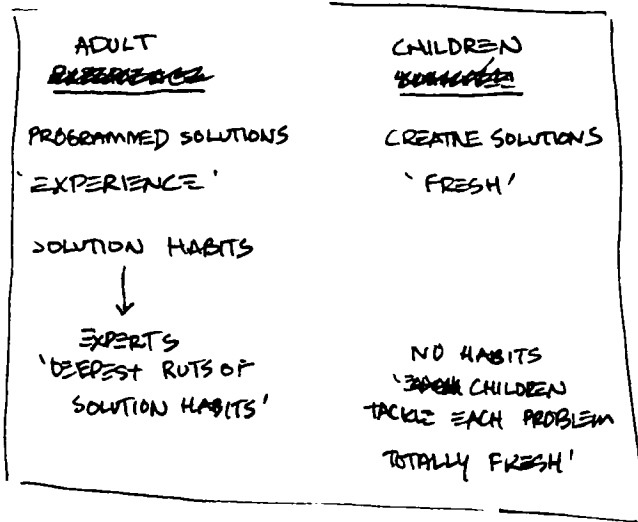 ADULT
PROGRAMMED SOLUTIONS
'EXPERIENCE'
SOLUTION HABITS
EXPERTS
'DEEPEST RUTS OF
SOLUTION HABITS'
CHILDREN
CREATIVE SOLUTIONS
'FRESH'
NO HABITS
'CHILDREN
TACKLE EACH PROBLEM
TOTALLY FRESH'